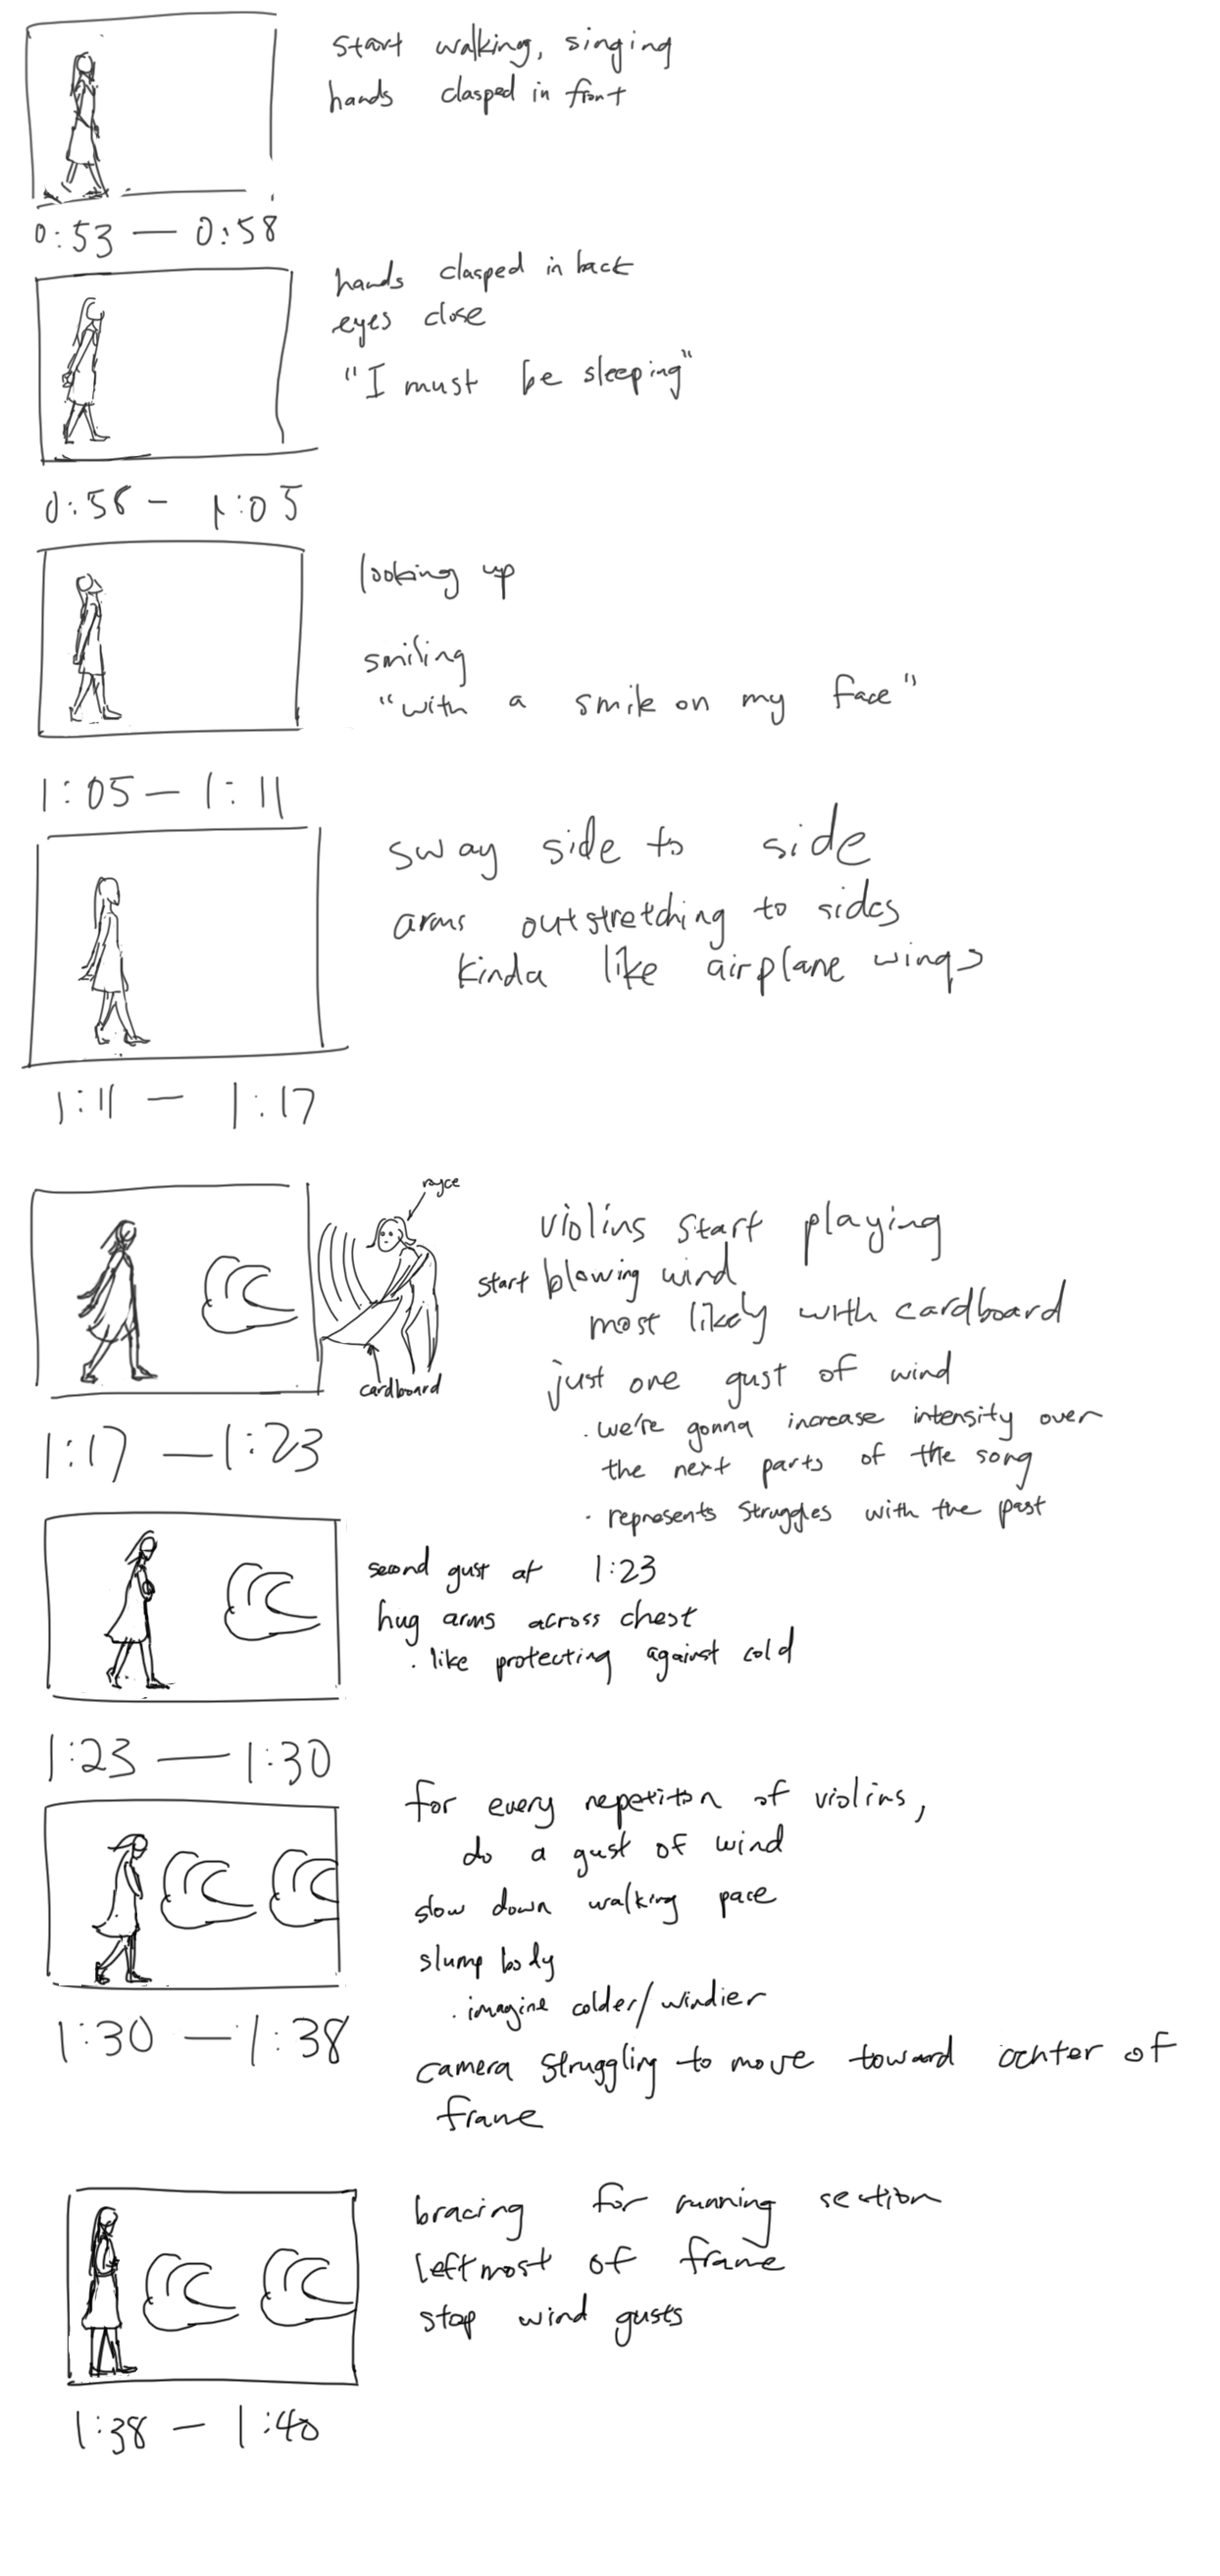 start walking, singing
hands clasped in front
0:53 — 0:58
hands clasped in back
eyes close
"I must be sleeping"
0:58 - 1:05
looking up
smiling
"with a smile on my face"
1:05 — 1:11
sway side to side
arms outstretching to sides
kinda like airplane wings
1:11 — 1:17
royce
cardboard
violins start playing
start blowing wind
most likely with cardboard
just one gust of wind
. we're gonna increase intensity over
the next parts of the song
. represents struggles with the past
1:17 — 1:23
second gust at 1:23
hug arms across chest
. like protecting against cold
1:23 — 1:30
for every repetiton of violins,
do a gust of wind
slow down walking pace
slump body
. imagine colder/windier
camera struggling to move toward center of
frame
1:30 — 1:38
bracing for running section
leftmost of frame
stop wind gusts
1:38 — 1:40